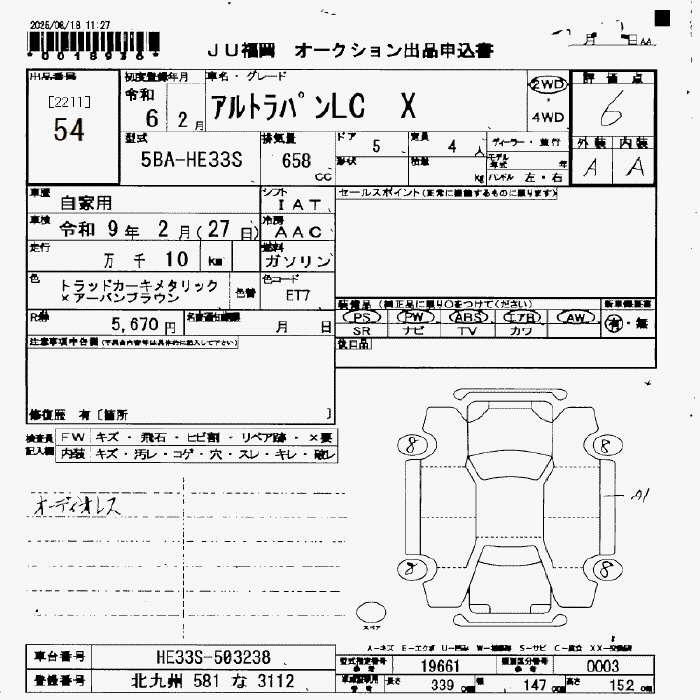 2025/06/18 11:27
JU福岡 オークション出品申込書
月 日
出品番号
[2211]
54
初度登録年月
令和
6 2月
車名・グレード
アルトラパンLC X
2WD
・
4WD
評価点
6
外装 内装
A A
型式
5BA-HE33S
排気量
658
cc
ドア
5
定員
4 人
形状
積量
kg
ディーラー・並行
モデル年式 年
ハンドル 左・右
車歴
自家用
シフト
IAT
車検
令和 9年 2月(27日)
冷房
AAC
走行
万 千 10 km
燃料
ガソリン
色
トラッドカーキメタリック
×アーバンブラウン
色替
色コード
ET7
R券
5,670 円
月 日
セールスポイント(正常に機能するものに限ります)
装備品(純正品に限り○をつけてください)
PS PW ABS エアB AW
SR ナビ TV カワ
新車保証書
有・無
後日品
注意事項申告欄
修復歴 有[箇所 ]
検査員
記入欄
FW キズ・飛石・ヒビ割・リペア跡・×要
内装 キズ・汚レ・コゲ・穴・スレ・キレ・破レ
オーディオレス
8 8
8 8
スペア
車台番号 HE33S-503238
登録番号 北九州 581 な 3112
型式指定番号 19661
類別区分番号 0003
長さ 339 幅 147 高さ 152